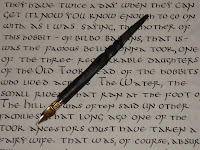 they have twice a day when they can
get it. now you know enough to go on
with. as i was saying, the mother of
this hobbit - of bilbo baggins, that is -
was the famous belladonna took, one
of the three remarkable daughters
of the old took, head of the hobbits
who lived across the water, the
small river that ran at the foot of
the hill. it was often said (in other
families) that long ago one of the
took ancestors must have taken a
fairy wife. that was, of course, absurd,